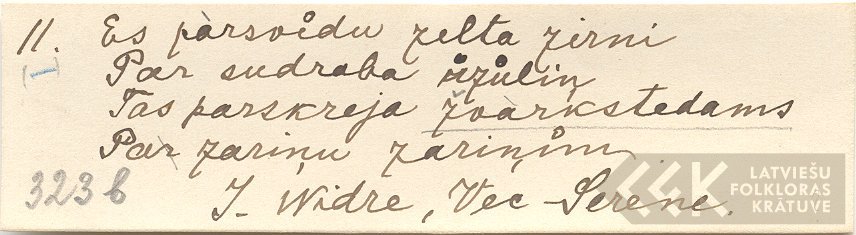 11. Es pàrsvåidu zelta zirni
I
Pær sudraba åzůliņ
Tas parskreja žvàrkstedams
Pær zariņu zariņim
323 b
J. Widre, Već-Serene.
LATVIEŠU
FOLKLORAS
KRĀTUVE